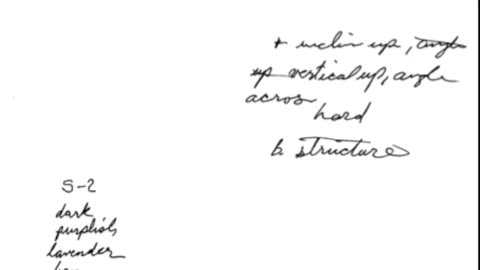 + inclin up, angle
up vertical up, angle
across
hard
b. structure
S-2
dark
purplish
lavender